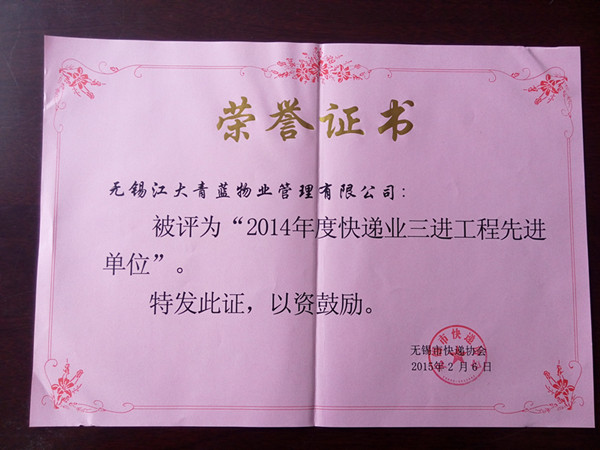 荣誉证书
无锡江大青蓝物业管理有限公司：
被评为“2014年度快递业三进工程先进
单位”。
特发此证，以资鼓励。
市快递
无锡市快递协会
2015年2月6日